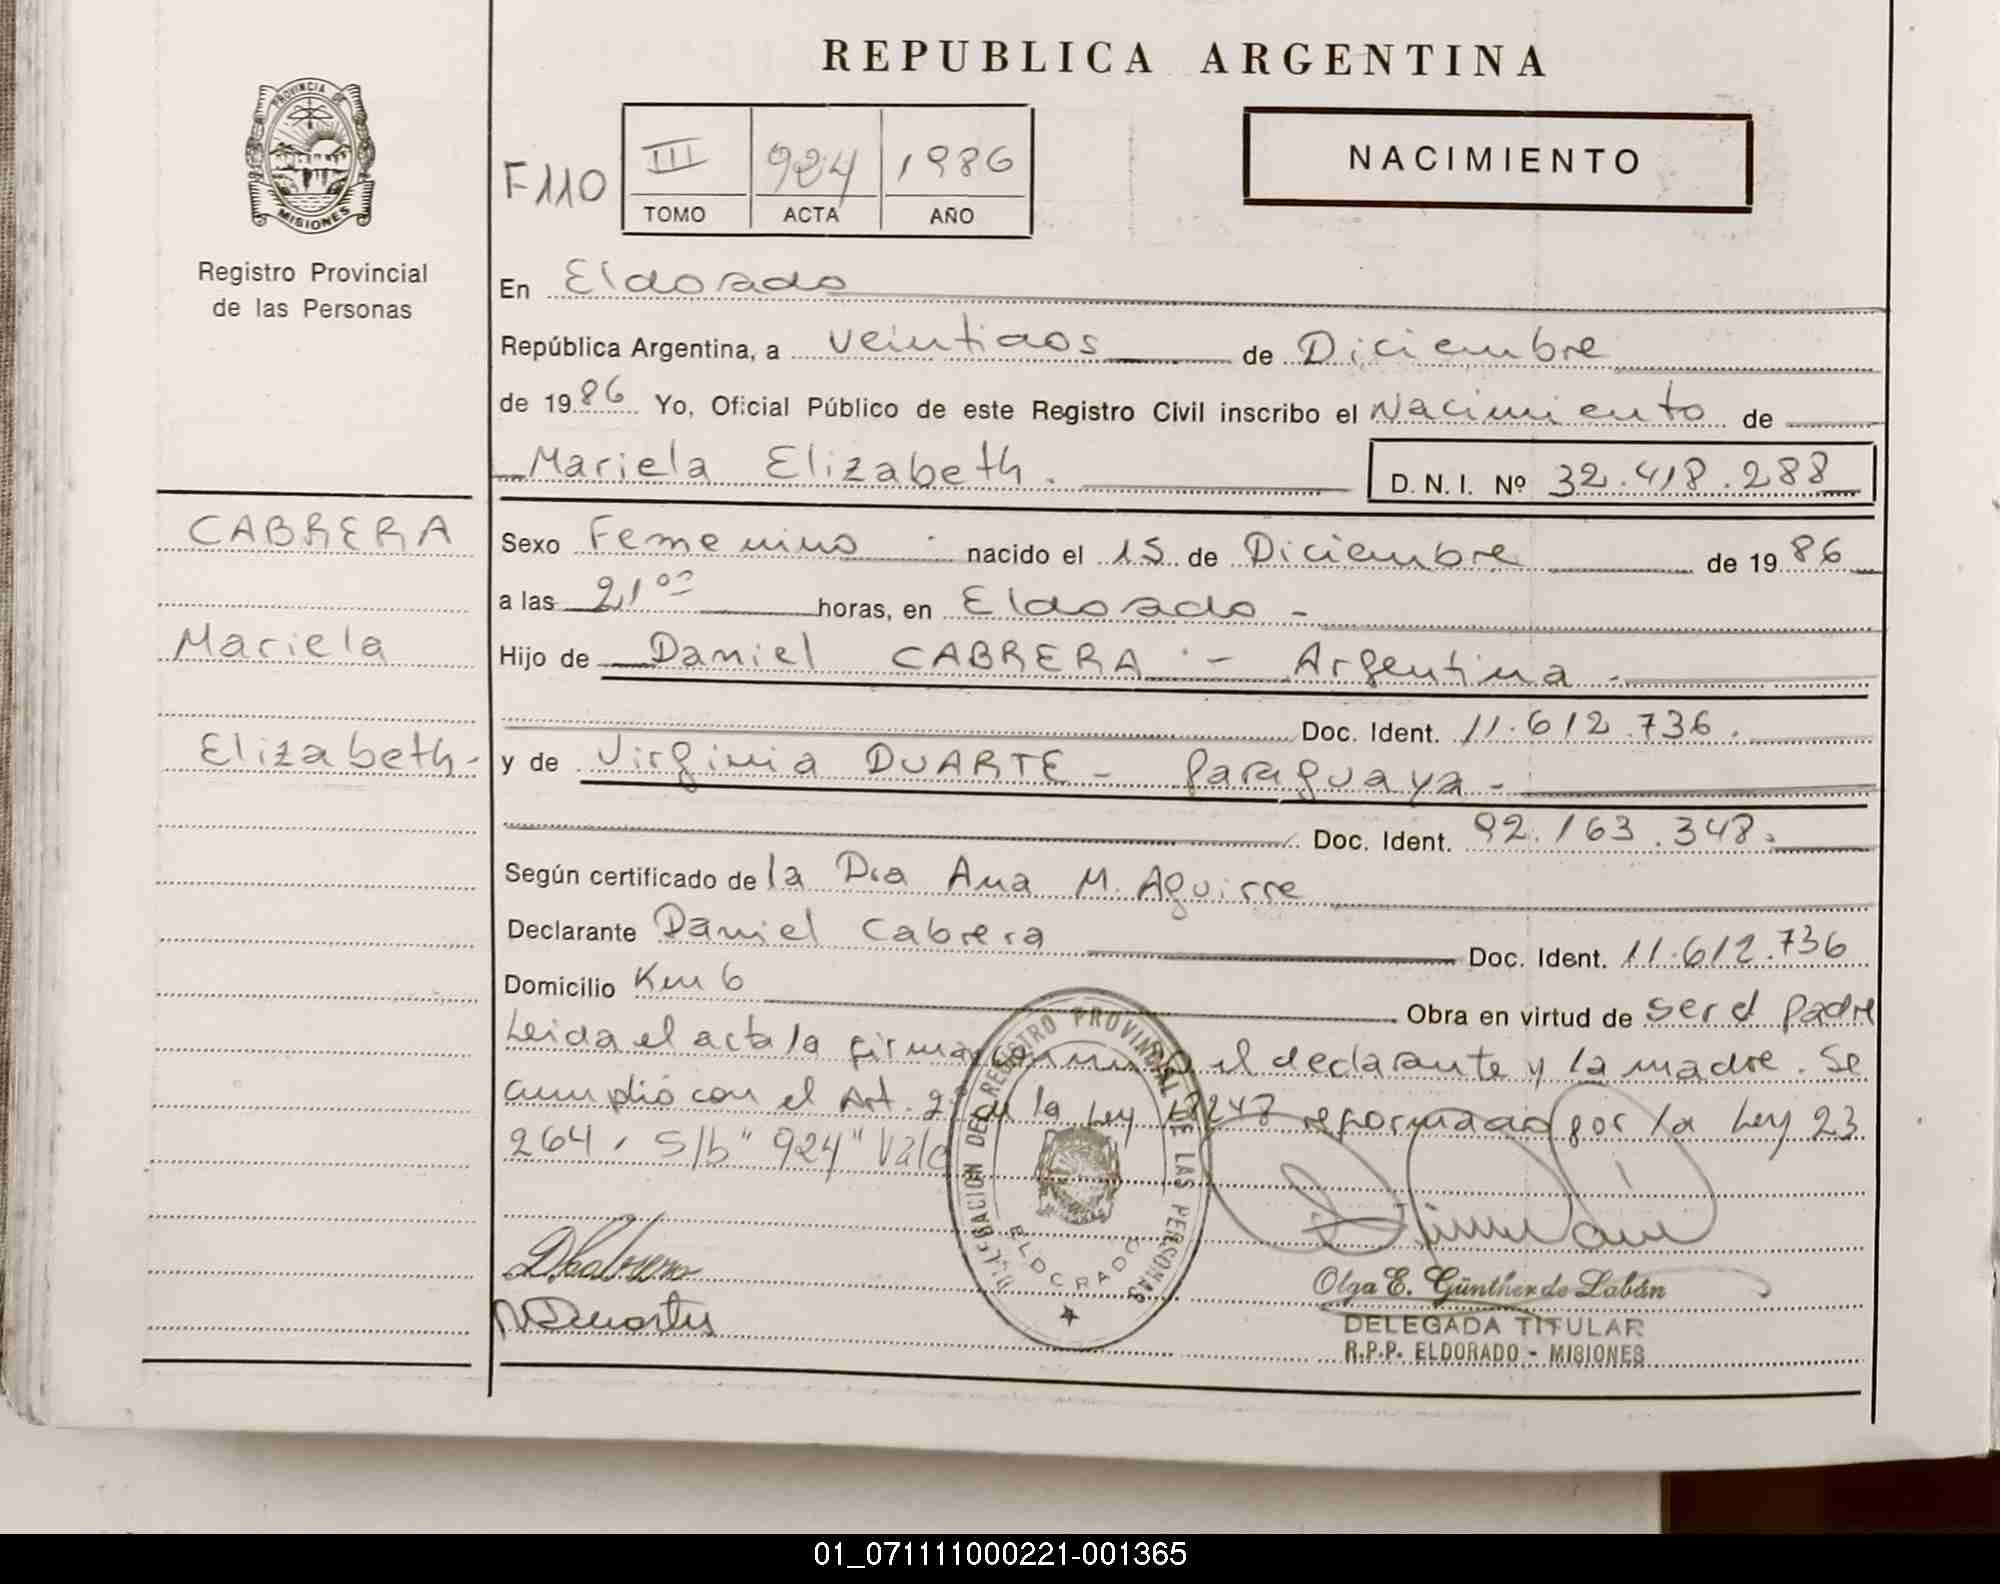 REPUBLICA ARGENTINA
PROVINCIA DE
MISIONES
Registro Provincial
de las Personas
F110
III 924 1986
TOMO ACTA AÑO
NACIMIENTO
En Eldorado
República Argentina, a veintidos de Diciembre
de 1986 Yo, Oficial Público de este Registro Civil inscribo el Nacimiento de
Mariela Elizabeth. D. N. I. Nº 32.418.288
CABRERA
Mariela
Elizabeth-
Sexo Femenino nacido el 15 de Diciembre de 1986
a las 21⁰⁰ horas, en Eldorado -
Hijo de Daniel CABRERA - Argentina -
Doc. Ident. 11.612.736.
y de Virginia DUARTE - Paraguaya -
Doc. Ident. 92.163.348.
Según certificado de la Dra Ana M. Aguirre
Declarante Daniel Cabrera Doc. Ident. 11.612.736
Domicilio Km 6 Obra en virtud de ser el padre
Leida el acta la firman conmigo el declarante y la madre. Se
cumplió con el Art. 2º de la Ley 18248 reformado por la Ley 23
264, S/b "924" Vale
DELEGACION DEL REGISTRO PROVINCIAL DE LAS PERSONAS
ELDORADO
D. Cabrera
V Duarte
Olga E. Günther de Labán
DELEGADA TITULAR
R.P.P. ELDORADO - MISIONES
01_071111000221-001365